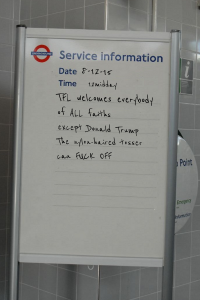 Service information
Date 8-12-15
Time 12midday
TFL welcomes everybody
of ALL faiths
except Donald Trump
The nylon-haired tosser
can FUCK OFF
Point